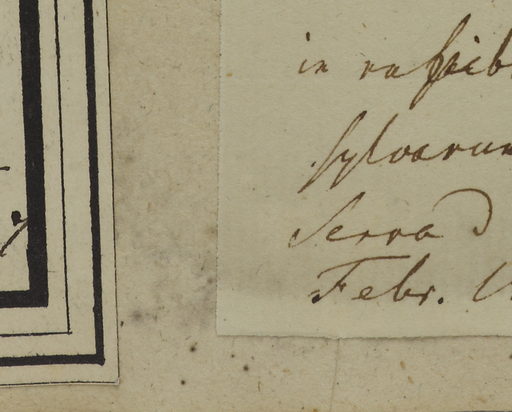 in rupib
sylvarum
Serra d
Febr.